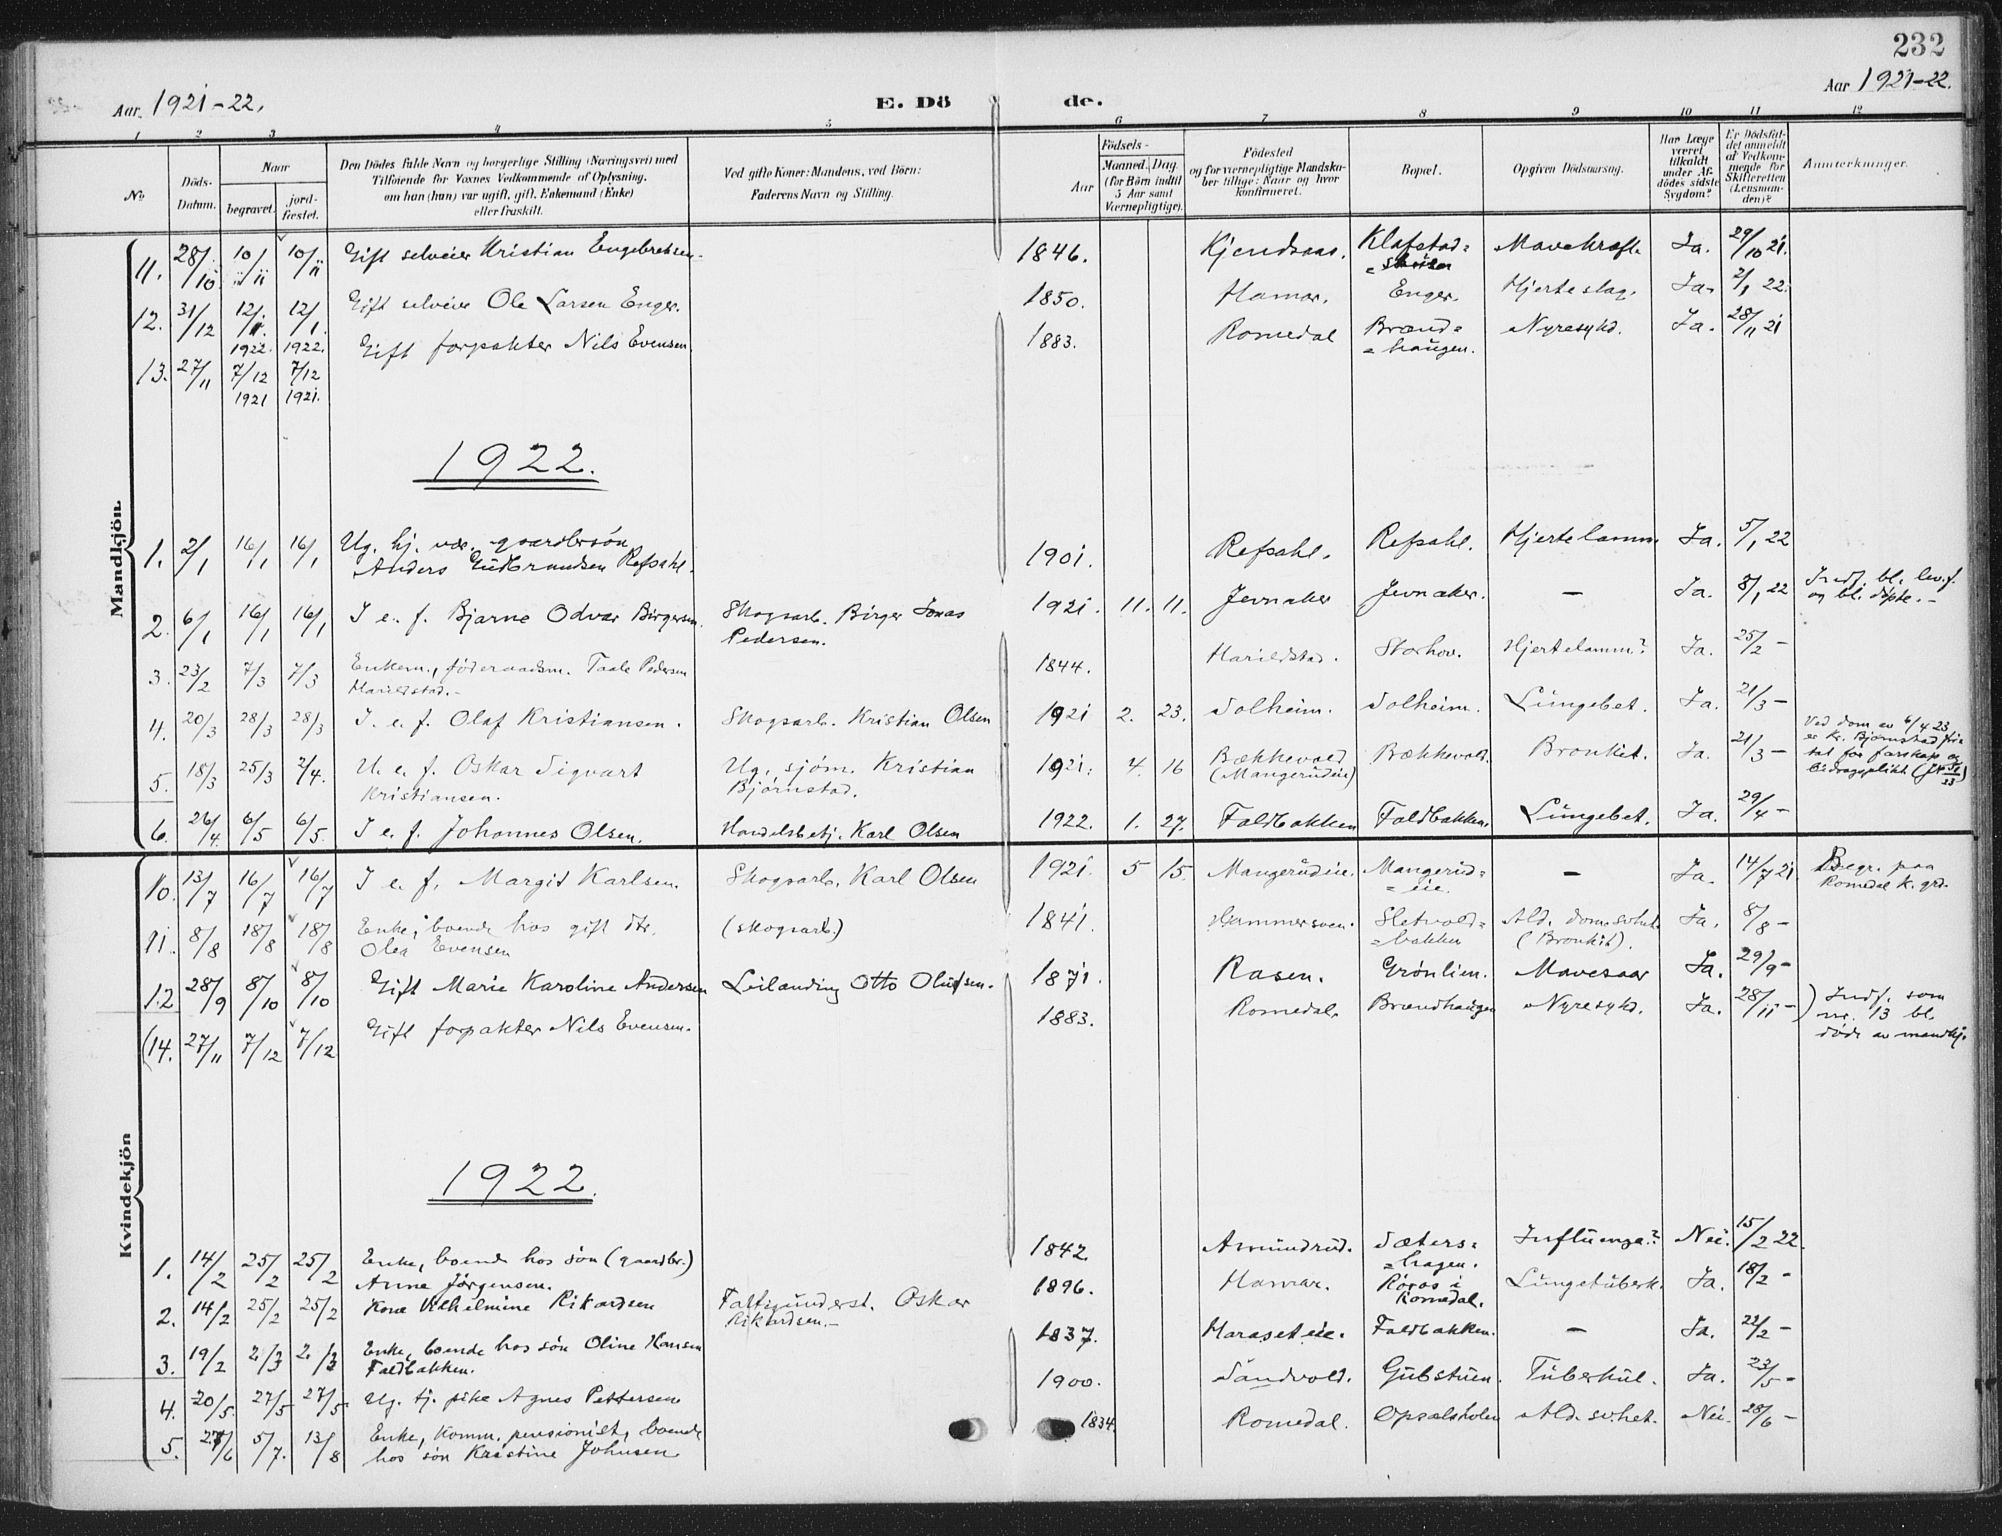 232
Aar. 1921-22.
E. Dö de.
Aar 1921-22.
1 2 3 4 5 6 7 8 9 10 11 12
No.
Döds-Datum.
Naar
begravet.
jord-fæstet.
Den Dödes fulde Navn og borgerlige Stilling (Næringsvei) med
Tilföiende for Voxnes Vedkommende af Oplysning,
om han (hun) var ugift, gift, Enkemand (Enke)
eller fraskilt.
Ved gifte Koner: Mandens, ved Börn:
Faderens Navn og Stilling.
Födsels-
Aar
Maaned. Dag.
(for Börn indtil
5 Aar samt
Værnepligtige).
Födested
og for værnepligtige Mandska-
ber tillige: Naar og hvor
konfirmeret.
Bopæl.
Opgiven Dödsaarsag.
Har Læge
været
tilkaldt
under Af-
dödes sidste
Sygdom?
Er Dödsfal-
det anmeldt
af Vedkom-
mende for
Skifteretten
(Lensman-
den)?
Anmerkninger.
Mandkjön.
11. 28/10 10/11 10/11 Gift selveier Kristian Engebretsen. 1846. Kjendsaas. Klafstad= Mavekræft Ja. 29/10 21.
12. 31/12 12/1. 1922. 12/1. 1922. Gift selveier Ole Larsen Enger. 1850. Hamar. Enger. Hjerteslag. Ja. 2/1 22.
13. 27/11 7/12 1921 7/12 1921. Gift forpakter Nils Evensen 1883. Romedal Brænd=
=haugen. Nyresykd. Ja. 28/11 21
1922.
1. 2/1 16/1 16/1 Ug. hj. vær. gaardbrsön
Anders Gudbrandsen Refsahl. 1901. Refsahl. Refsahl. Hjertelamm. Ja. 5/1 22
2. 6/1 16/1 16/1 I e. f. Bjarne Odvar Birgersen. Skogsarb. Birger Jonas
Pedersen. 1921. 11. 11. Jevnaker Jevnaker. - Ja. 8/1 22 Indf. bl. lev. f.
og bl. döpte.-
3. 23/2 7/3 7/3 Enkem., föderaadsm. Taale Pedersen
Harildstad.- 1844. Harildstad. Storhov. Hjertelamm? Ja. 25/2 -
4. 20/3 28/3 28/3 I. e. f. Olaf Kristiansen. Skogsarb. Kristian Olsen 1921 2. 23. Solheim. Solheim. Lungebet. Ja. 21/3 -
5. 18/3 25/3 2/4. U. e. f. Oskar Sigvart
Kristiansen. Ug. sjöm. Kristian
Björnstad. 1921. 4. 16 Bækkevold
(Mangerudeie) Bækkevold. Bronkit. Ja. 21/3 - Ved dom av 6/4 23
er Kr. Bjørnstad fri=
tat for farskap og
bidragsplikt
6. 26/4 6/5 6/5. I e. f. Johannes Olsen. Handelsbetj. Karl Olsen 1922. 1. 27. Faldbakken Faldbakken. Lungebet. Ja. 29/4 -
Kvindekjön
10. 13/7 16/7 16/7 I e. f. Margit Karlsen. Skogsarb. Karl Olsen 1921. 5 15. Mangerudeie. Mangerud=
=eie. - Ja. 14/7 21. Begr. paa
Romedal k. grd.
11. 8/8 18/8 18/8 Enke, boende hos gift dtr.
Olea Evensen (skogsarb.) 1841. Hammersveen. Sletvold=
=bakken Ald. doms svhet
(Bronkit). Ja. 8/8 -
12 28/9 8/10 8/10 Gift Marie Karoline Andersen Leilænding Otto Olufsen. 1871. Rasen. Grönlien. Mavesaar Ja. 29/9 -
(14. 27/11 7/12 7/12 Gift forpakter Nils Evensen. 1883. Romedal. Brændhaugen Nyresykd. Ja. 28/11 - ) Indf. som
nr. 13 bl.
döde av mandkj.
1922.
1. 14/2 25/2 25/2 Enke, boende hos sön (gaardbr.)
Anne Jörgensen. 1842. Amundrud. Sæters=
=hagen. Influenza? Nei. 15/2 22.
2. 14/2 25/2 25/2 Kone Vilhelmine Rikardsen Oskar
Rikardsen.- 1896. Hamar. Röras i
Romedal. Lungetuberk. Ja. 18/2 -
3. 19/2 2/3 2/3 Enke, boende hos sön Oline Hansen
Faldbakken. 1837. Haraseteie. Faldbakken. - Ja. 22/2 -
4. 20/5. 27/5 27/5. Ug. tj. pike Agnes Pettersen 1900. Sandvold. Gubstuen. Tuberkul. Ja. 23/5 -
5. 27/6 5/7. 13/8 Enke, Komm. pensionist, boende
hos sön Kristine Johnsen 1834. Romedal. Opsalsholen Ald. svhet. Nei. 28/6 -